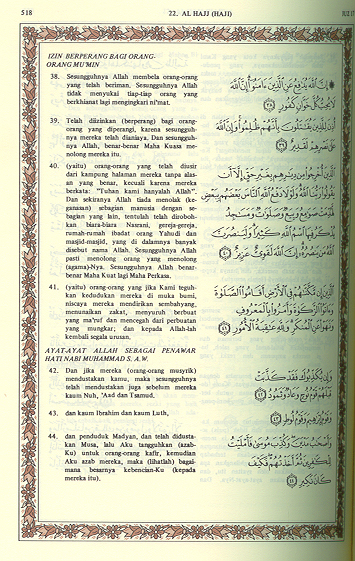 518
22. AL HAJJ (HAJI)
IZIN BERPERANG BAGI ORANG-
ORANG MU'MIN
38. Sesungguhnya Allah membela orang-orang
yang telah beriman. Sesungguhnya Allah
tidak menyukai tiap-tiap orang yang
berkhianat lagi mengingkari ni'mat.
39. Telah diizinkan (berperang) bagi orang-
orang yang diperangi, karena sesungguh-
nya mereka telah dianiaya. Dan sesungguh-
nya Allah, benar-benar Maha Kuasa me-
nolong mereka itu.
40. (yaitu) orang-orang yang telah diusir
dari kampung halaman mereka tanpa alas-
an yang benar, kecuali karena mereka
berkata: "Tuhan kami hanyalah Allah".
Dan sekiranya Allah tiada menolak (ke-
ganasan) sebagian manusia dengan se-
bagian yang lain, tentulah telah diroboh-
kan biara-biara Nasrani, gereja-gereja,
rumah-rumah ibadat orang Yahudi dan
masjid-masjid, yang di dalamnya banyak
disebut nama Allah. Sesungguhnya Allah
pasti menolong orang yang menolong
(agama)-Nya. Sesungguhnya Allah benar-
benar Maha Kuat lagi Maha Perkasa.
41. (yaitu) orang-orang yang jika Kami teguh-
kan kedudukan mereka di muka bumi,
niscaya mereka mendirikan sembahyang,
menunaikan zakat, menyuruh berbuat
yang ma'ruf dan mencegah dari perbuatan
yang mungkar; dan kepada Allah-lah
kembali segala urusan.
AYAT-AYAT ALLAH SEBAGAI PENAWAR
HATI NABI MUHAMMAD S. A.W.
42. Dan jika mereka (orang-orang musyrik)
mendustakan kamu, maka sesungguhnya
telah mendustakan juga sebelum mereka
kaum Nuh, 'Aad dan Tsamud.
43. dan kaum Ibrahim dan kaum Luth,
44. dan penduduk Madyan, dan telah didusta-
kan Musa, lalu Aku tangguhkan (azab-
Ku) untuk orang-orang kafir, kemudian
Aku azab mereka, maka (lihatlah) bagai-
mana besarnya kebencian-Ku (kepada
mereka itu).
إِنَّ اللَّهَ يُدَافِعُ عَنِ الَّذِينَ ءَامَنُوا إِنَّ اللَّهَ
لَا يُحِبُّ كُلَّ خَوَّانٍ كَفُورٍ ٣٨
أُذِنَ لِلَّذِينَ يُقَاتَلُونَ بِأَنَّهُمْ ظُلِمُوا وَإِنَّ اللَّهَ
عَلَى نَصْرِهِمْ لَقَدِيرٌ ٣٩
الَّذِينَ أُخْرِجُوا مِن دِيَارِهِم بِغَيْرِ حَقٍّ إِلَّا أَن
يَقُولُوا رَبُّنَا اللَّهُ وَلَوْلَا دَفْعُ اللَّهِ النَّاسَ بَعْضَهُم بِبَعْضٍ
لَّهُدِّمَتْ صَوَامِعُ وَبِيَعٌ وَصَلَوَاتٌ وَمَسَاجِدُ
يُذْكَرُ فِيهَا اسْمُ اللَّهِ كَثِيرًا وَلَيَنصُرَنَّ
اللَّهُ مَن يَنصُرُهُ إِنَّ اللَّهَ لَقَوِيٌّ عَزِيزٌ ٤٠
الَّذِينَ إِن مَّكَّنَّاهُمْ فِي الْأَرْضِ أَقَامُوا الصَّلَوٰةَ
وَءَاتَوُا الزَّكَوٰةَ وَأَمَرُوا بِالْمَعْرُوفِ
وَنَهَوْا عَنِ الْمُنكَرِ وَلِلَّهِ عَاقِبَةُ الْأُمُورِ ٤١
وَإِن يُكَذِّبُوكَ فَقَدْ كَذَّبَتْ
قَبْلَهُمْ قَوْمُ نُوحٍ وَعَادٌ وَثَمُودُ ٤٢
وَقَوْمُ إِبْرَاهِيمَ وَقَوْمُ لُوطٍ ٤٣
وَأَصْحَابُ مَدْيَنَ وَكُذِّبَ مُوسَىٰ فَأَمْلَيْتُ
لِلْكَافِرِينَ ثُمَّ أَخَذْتُهُمْ فَكَيْفَ
كَانَ نَكِيرِ ٤٤